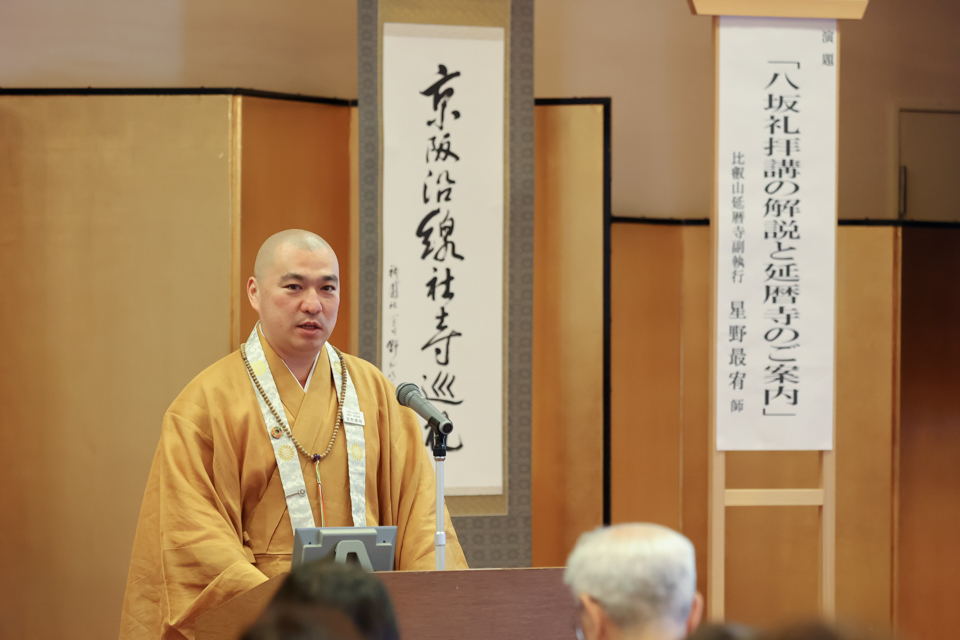 演題
「八坂礼拝講の解説と延暦寺のご案内」
比叡山延暦寺副執行 星野最宥 師
京阪沿線社寺巡礼